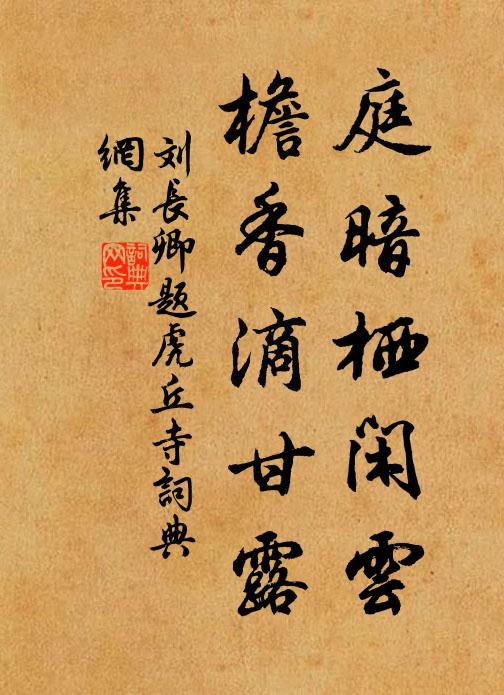 庭暗栖闲雲
檐香滴甘露
刘長卿題虎丘寺詞典
網集
詞典网印